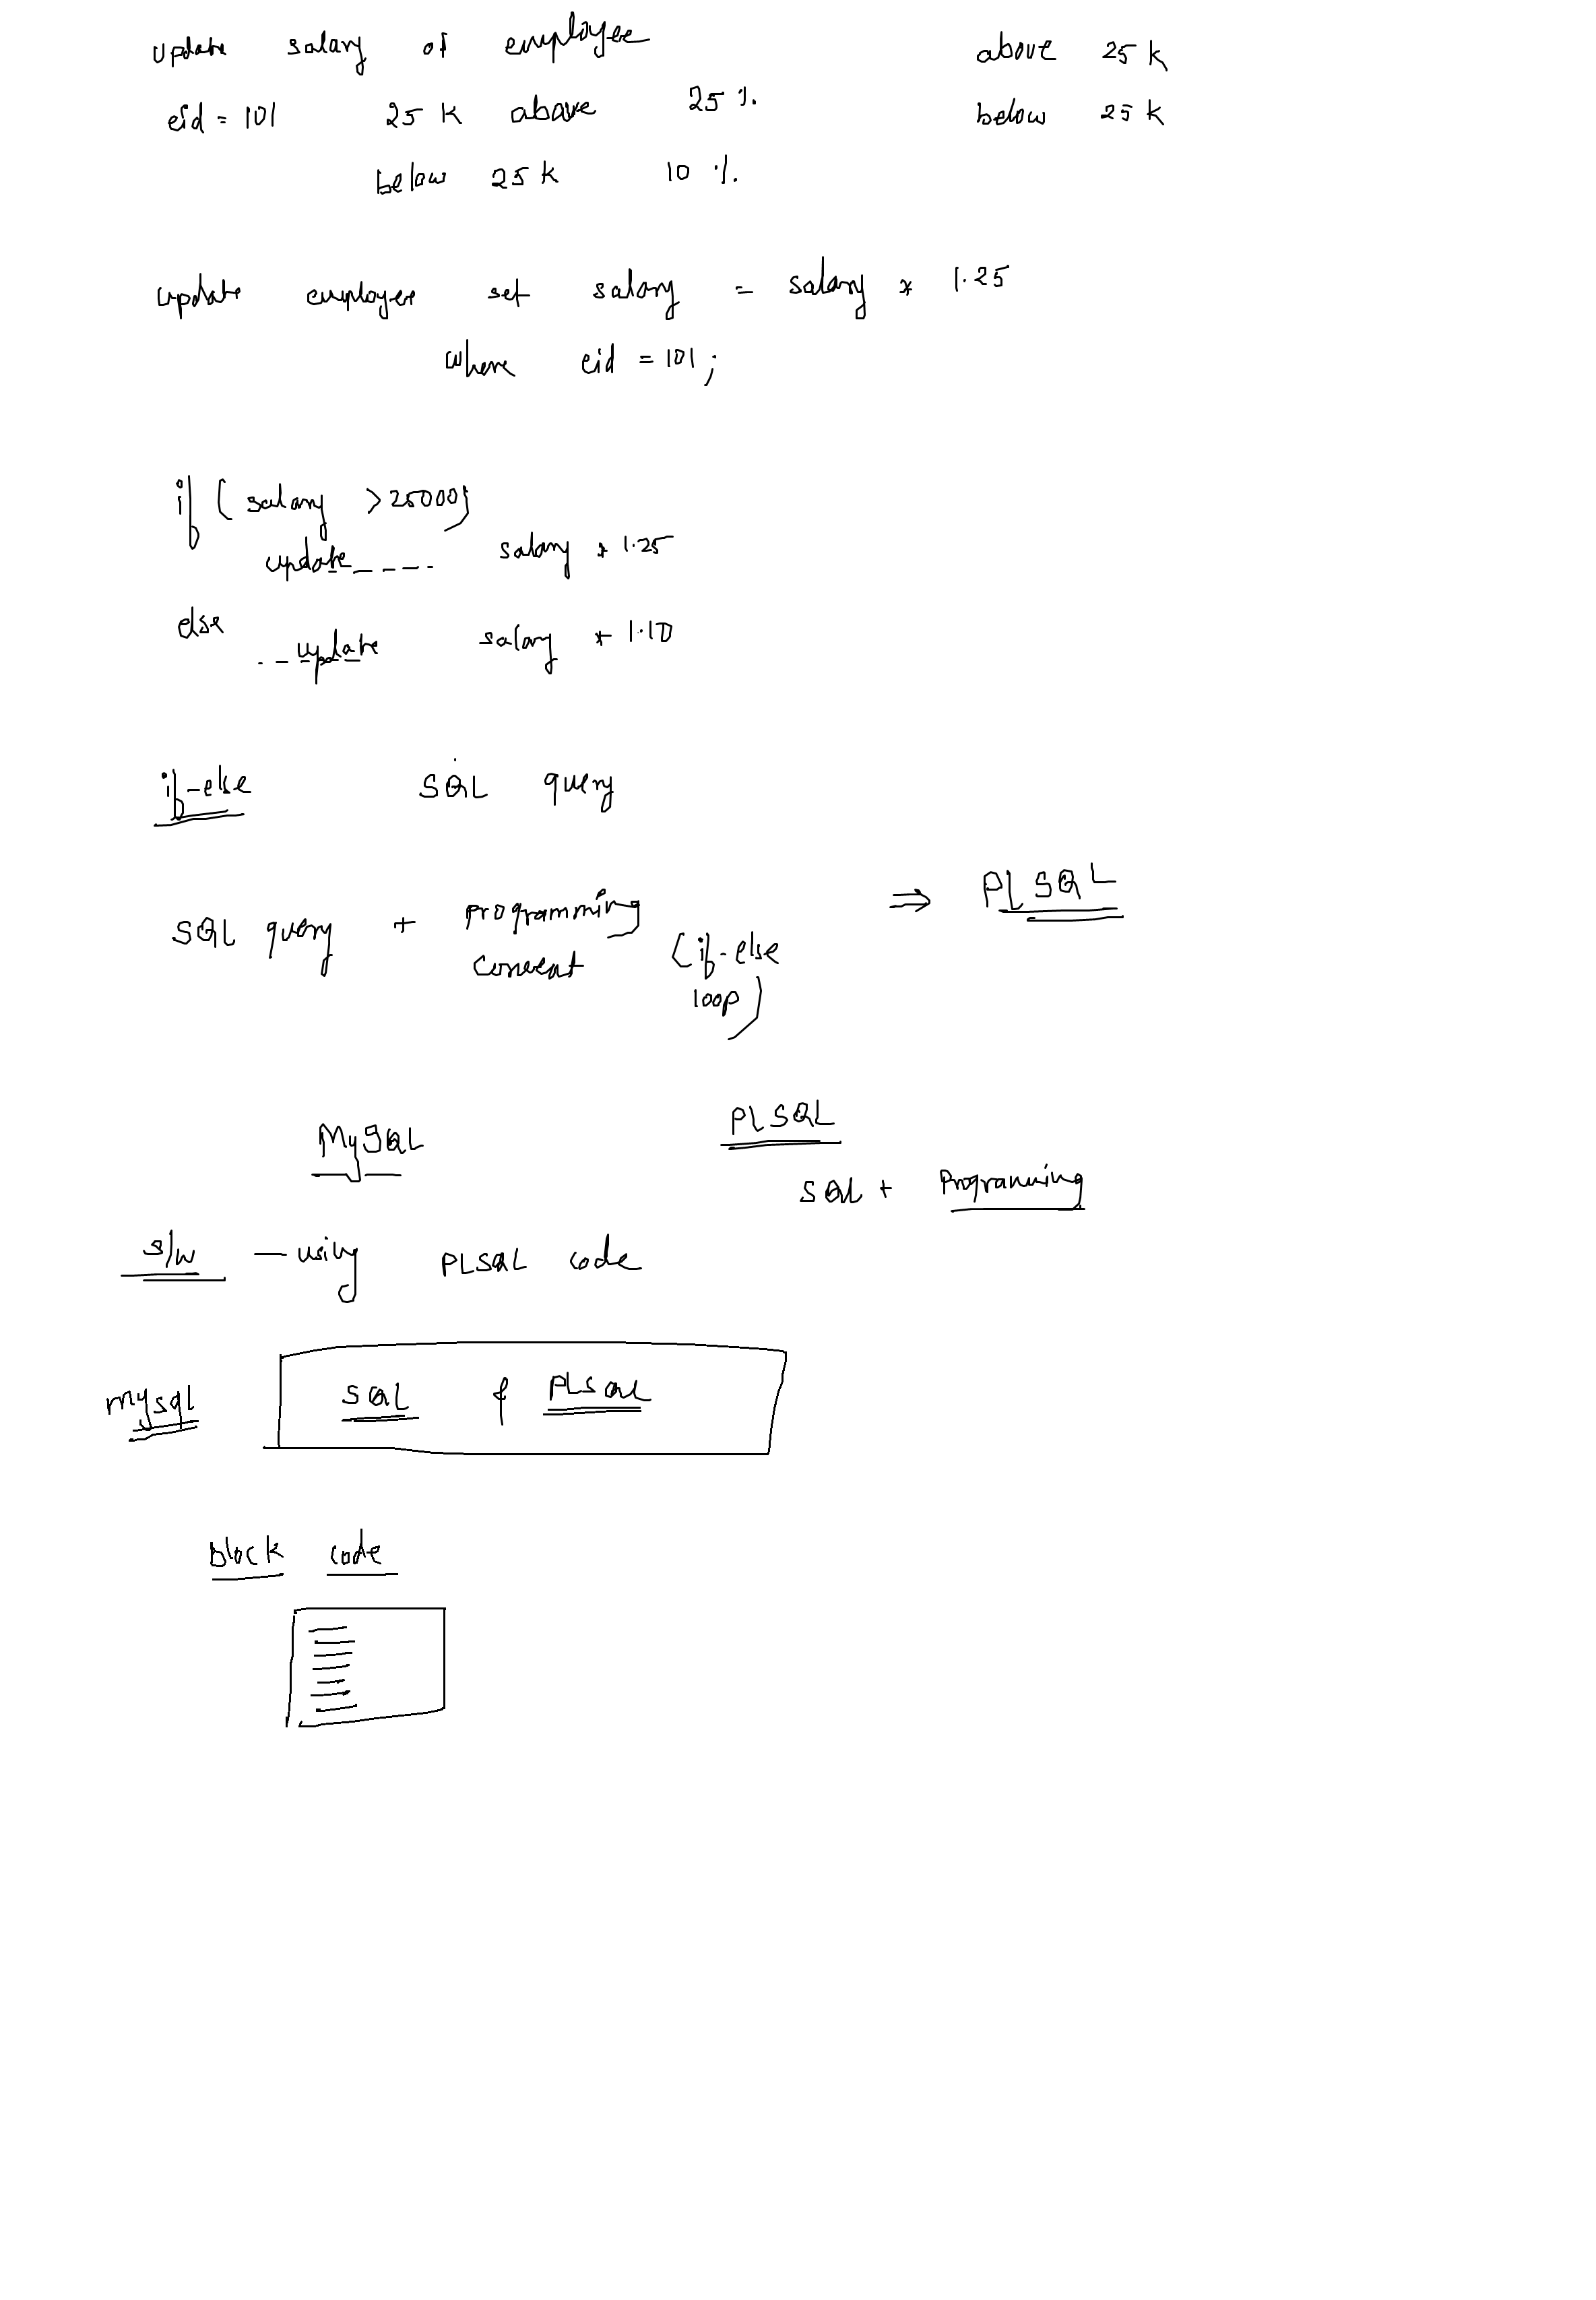 update salary of employee above 25 k
eid = 101 25 k above 25 %. below 25 k
below 25 k 10 %.
update employee set salary = salary * 1.25
where eid = 101 ;
if ( salary > 25000)
update _ _ _ _ . salary * 1.25
else
. . _ update salary * 1.10
if-else SQL query
SQL query + programming ⇒ PLSQL
(if-else
loop)
MySQL PLSQL
SQL + Programming
s/w — using PLSQL code
mysql SQL & PLSQL
block code